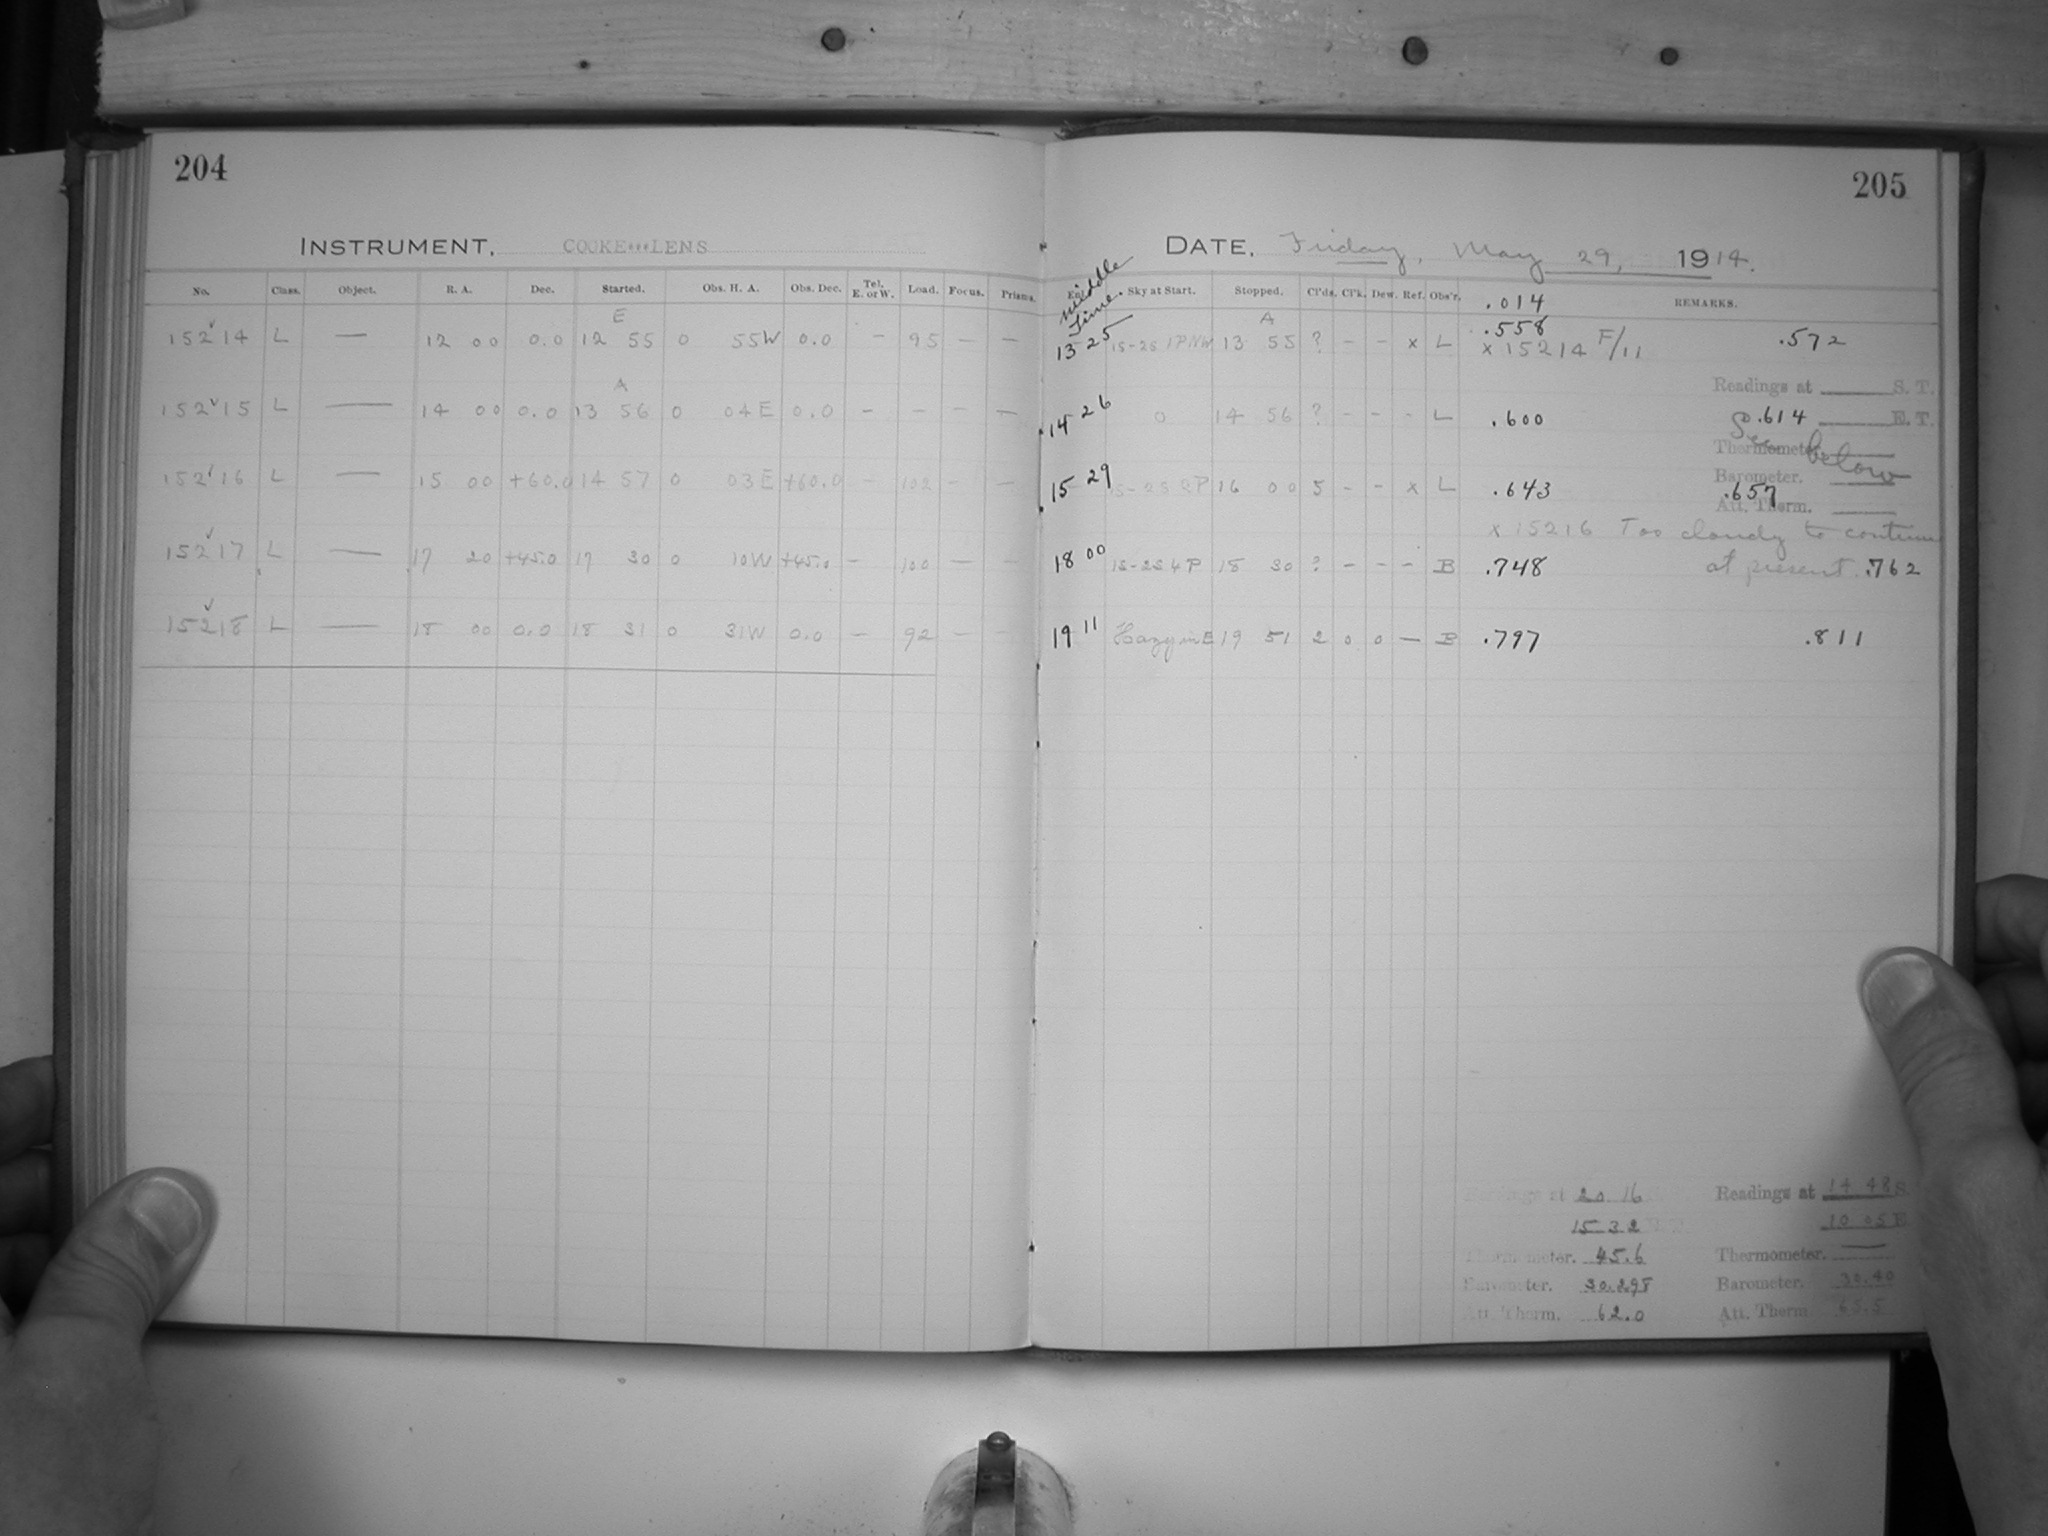 204
205
INSTRUMENT, COOKE***LENS
DATE, Friday, May 29, 1914.
No. Class. Object. R. A. Dec. Started. Obs. H. A. Obs. Dec. Tel. E. or W. Load. Focus. Prisms. middle Time. Sky at Start. Stopped. Cl'ds. Cl'k. Dew. Ref. Obs'r. .014 REMARKS.
E A .558
15214 L — 12 00 0.0 12 55 0 55W 0.0 - 95 - — 13 25 15-25 1PNW 13 55 ? - - x L x 15214 F/11 .572
Readings at S. T.
A
15215 L — 14 00 0.0 13 56 0 04E 0.0 - - - — 14 26 0 14 56 ? - - - L .600 .614 E. T.
See below
Thermometer.
Barometer.
15216 L — 15 00 +60.0 14 57 0 03E +60.0 - 102 - — 15 29 15-25 2P 16 00 5 - - x L .643 .657
Att. Therm.
x 15216 Too cloudy to continue
15217 L — 17 20 +45.0 17 30 0 10W +45.0 - 100 — — 18 00 15-25 4P 18 30 ? - - - B .748 at present. .762
15218 L — 18 00 0.0 18 31 0 31W 0.0 - 92 - - 19 11 Hazy in E 19 51 2 0 0 — B .797 .811
Readings at 20 16
15 32
Thermometer. 45.6
Barometer. 30.298
Att. Therm. 62.0
Readings at 14 48 S
10 05 E
Thermometer. —
Barometer. 30.40
Att. Therm. 65.5